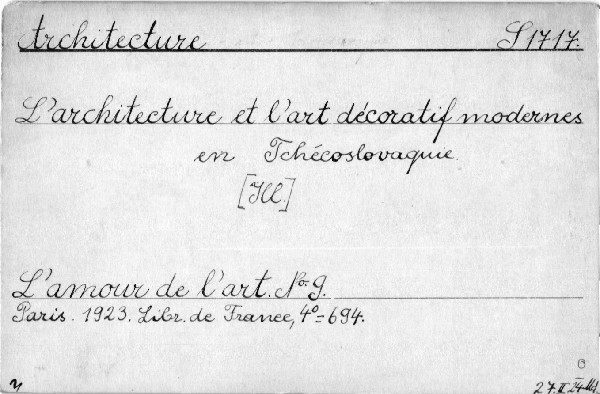 Architecture S 1717.
L'architecture et l'art décoratif modernes
en Tchécoslovaquie.
[Ill.]
L'amour de l'art. No. 9.
Paris. 1923. Libr. de France, 4º = 694.
27. II. 24